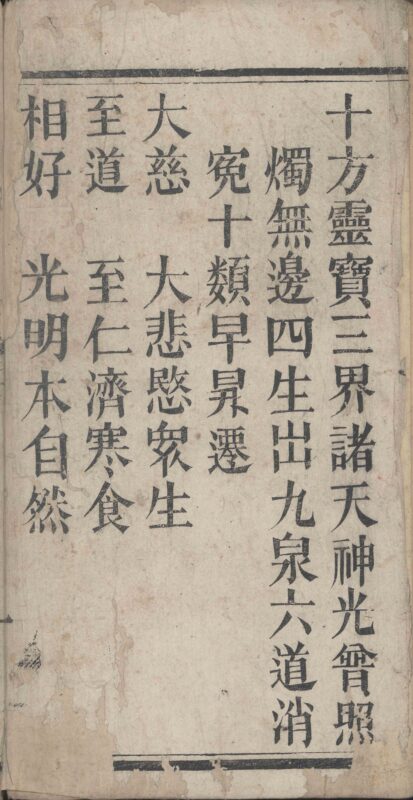 十方靈寶三界諸天神光曾照
燭無邊四生出九泉六道消
寃十𩔖早昇遷
大慈　大悲愍衆生
至道　至仁濟寒食
相好　光明本自然